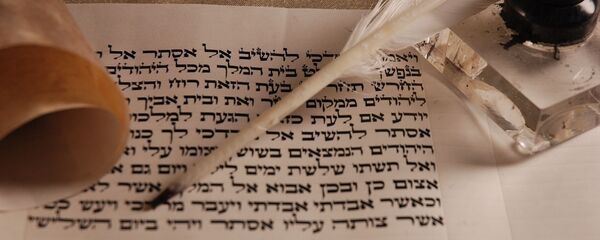 להשיב אל אסתר אל
בית המלך מכל היהודים
החרש בעת הזאת רוח
ליהודים ממקום ואת ובית אביך
יודע אם לעת הגעת למלכות
אסתר להשיב אל מרדכי לך
היהודים הנמצאים בשושן וצומו עלי
ואל תשתו שלשת ימים לילה ויום גם
אצום כן ובכן אבוא אל המלך אשר לא
וכאשר אבדתי אבדתי ויעבר מרדכי ויעש
אשר צותה עליו אסתר ויהי ביום השלישי